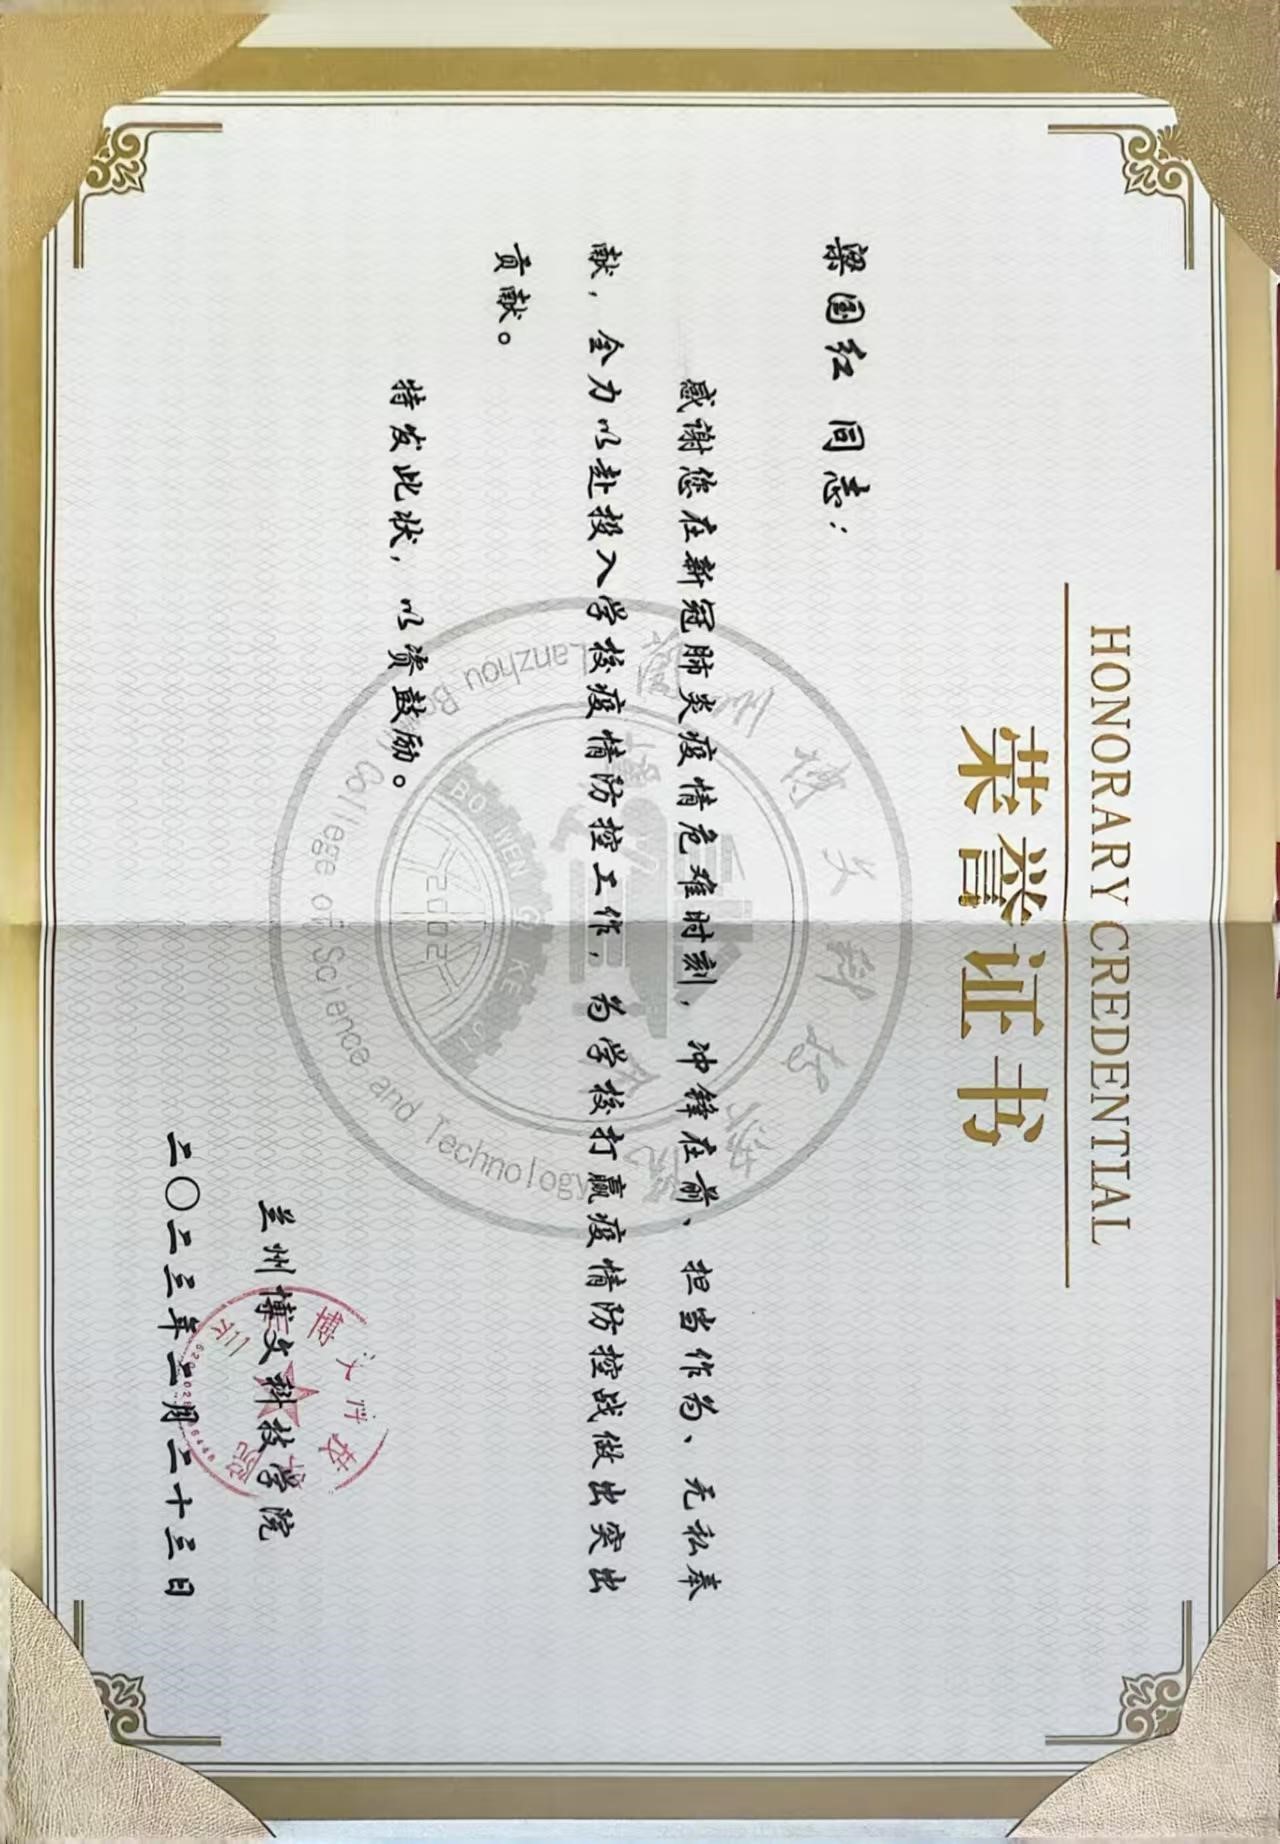 HONORARY CREDENTIAL
荣誉证书
梁国红 同志：
感谢您在新冠肺炎疫情危难时刻，冲锋在前、担当作为、无私奉
献，全力以赴投入学校疫情防控工作，为学校打赢疫情防控战做出突出
贡献。
特发此状，以资鼓励。
兰州博文科技学院
二〇二三年二月二十三日
兰州博文科技学院
Lanzhou Bowen College of Science and Technology
2002